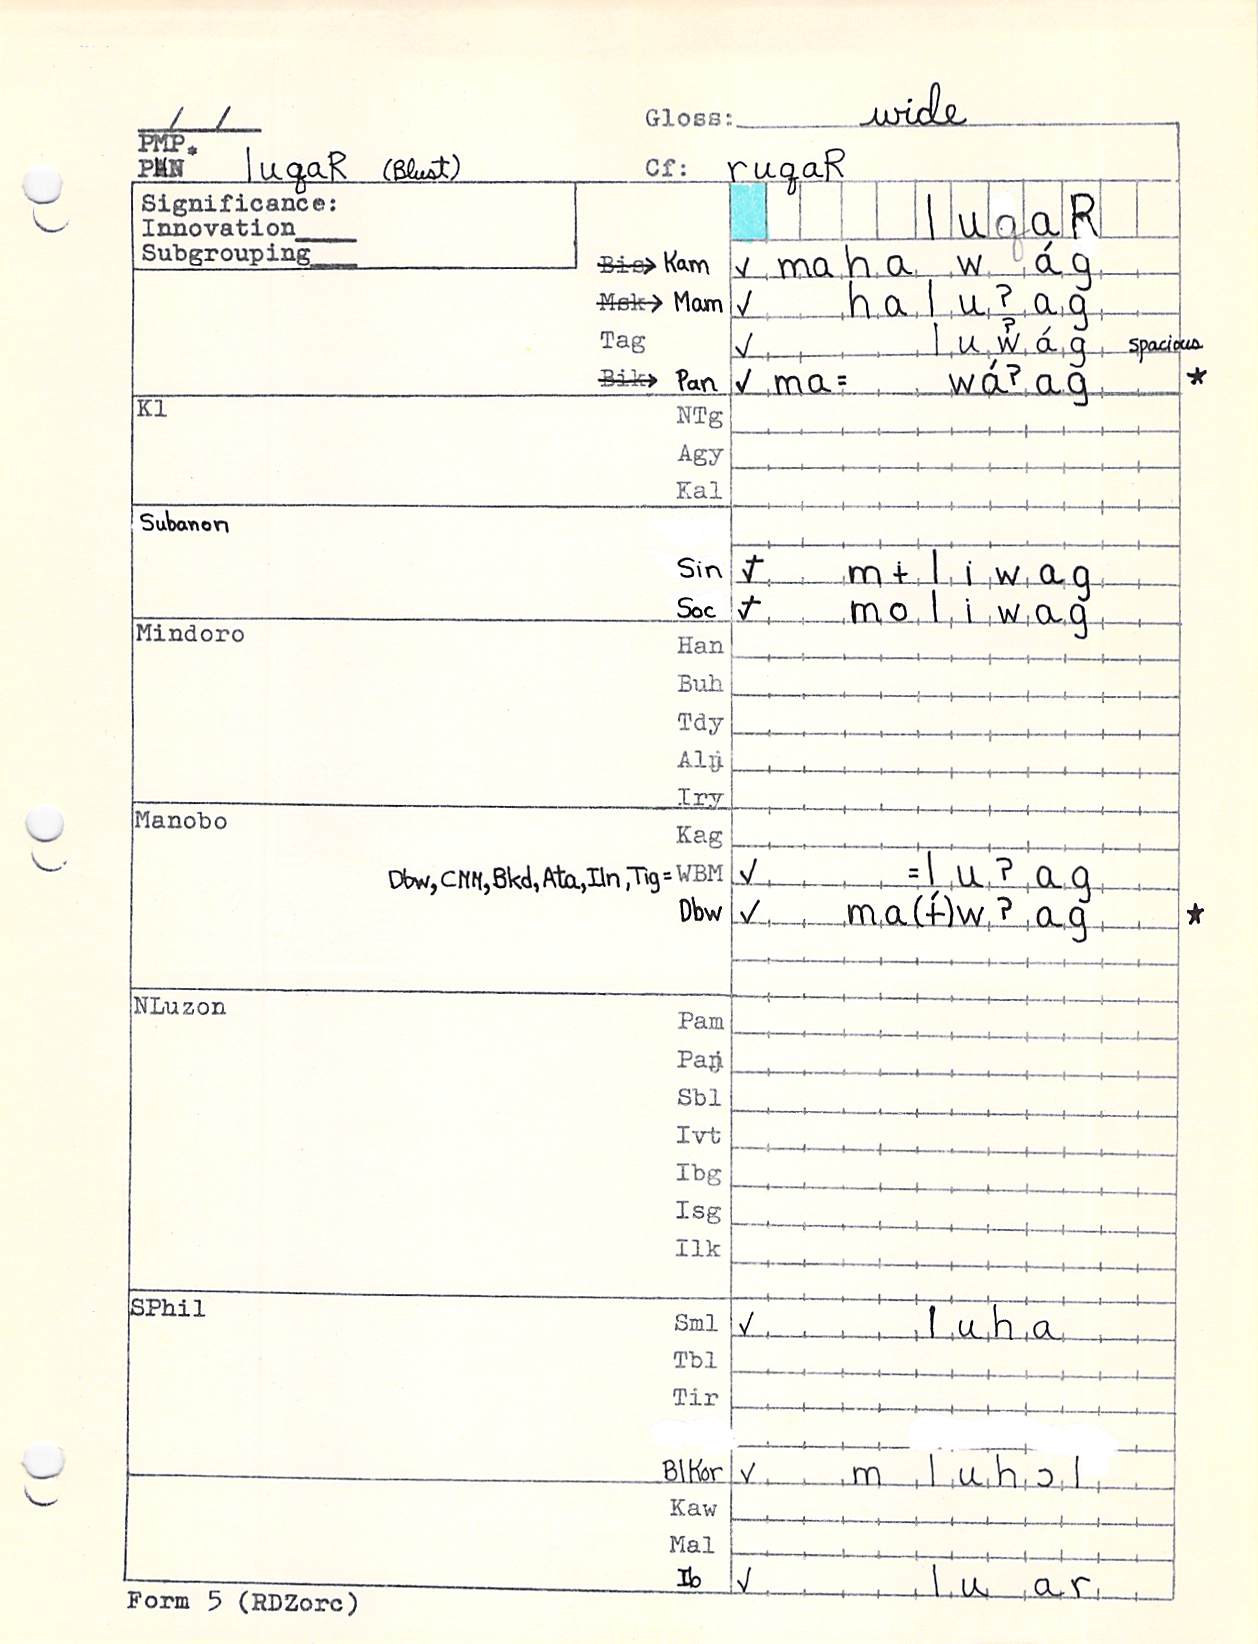 Gloss: wide
PMP*
PHN luqaR (Blust) Cf: ruqaR
Significance:
Innovation
Subgrouping
luqaR
Bis → Kam ✓ mahawág
Msk → Mam ✓ haluʔag
Tag ✓ luʔwág spacious
Bik → Pan ✓ ma=wáʔag ★
Kl
NTg
Agy
Kal
Subanon
Sin ✓ mɨliwag
Soc ✓ moliwag
Mindoro
Han
Buh
Tdy
Alŋ
Iry
Manobo
Kag
Dbw, CMM, Bkd, Ata, Iln, Tig = WBM ✓ =luʔag
Dbw ✓ ma(ɨ́)wʔag ★
NLuzon
Pam
Paŋ
Sbl
Ivt
Ibg
Isg
Ilk
SPhil
Sml ✓ luha
Tbl
Tir
BlKor ✓ m luhɔl
Kaw
Mal
Ib ✓ lu ar
Form 5 (RDZorc)